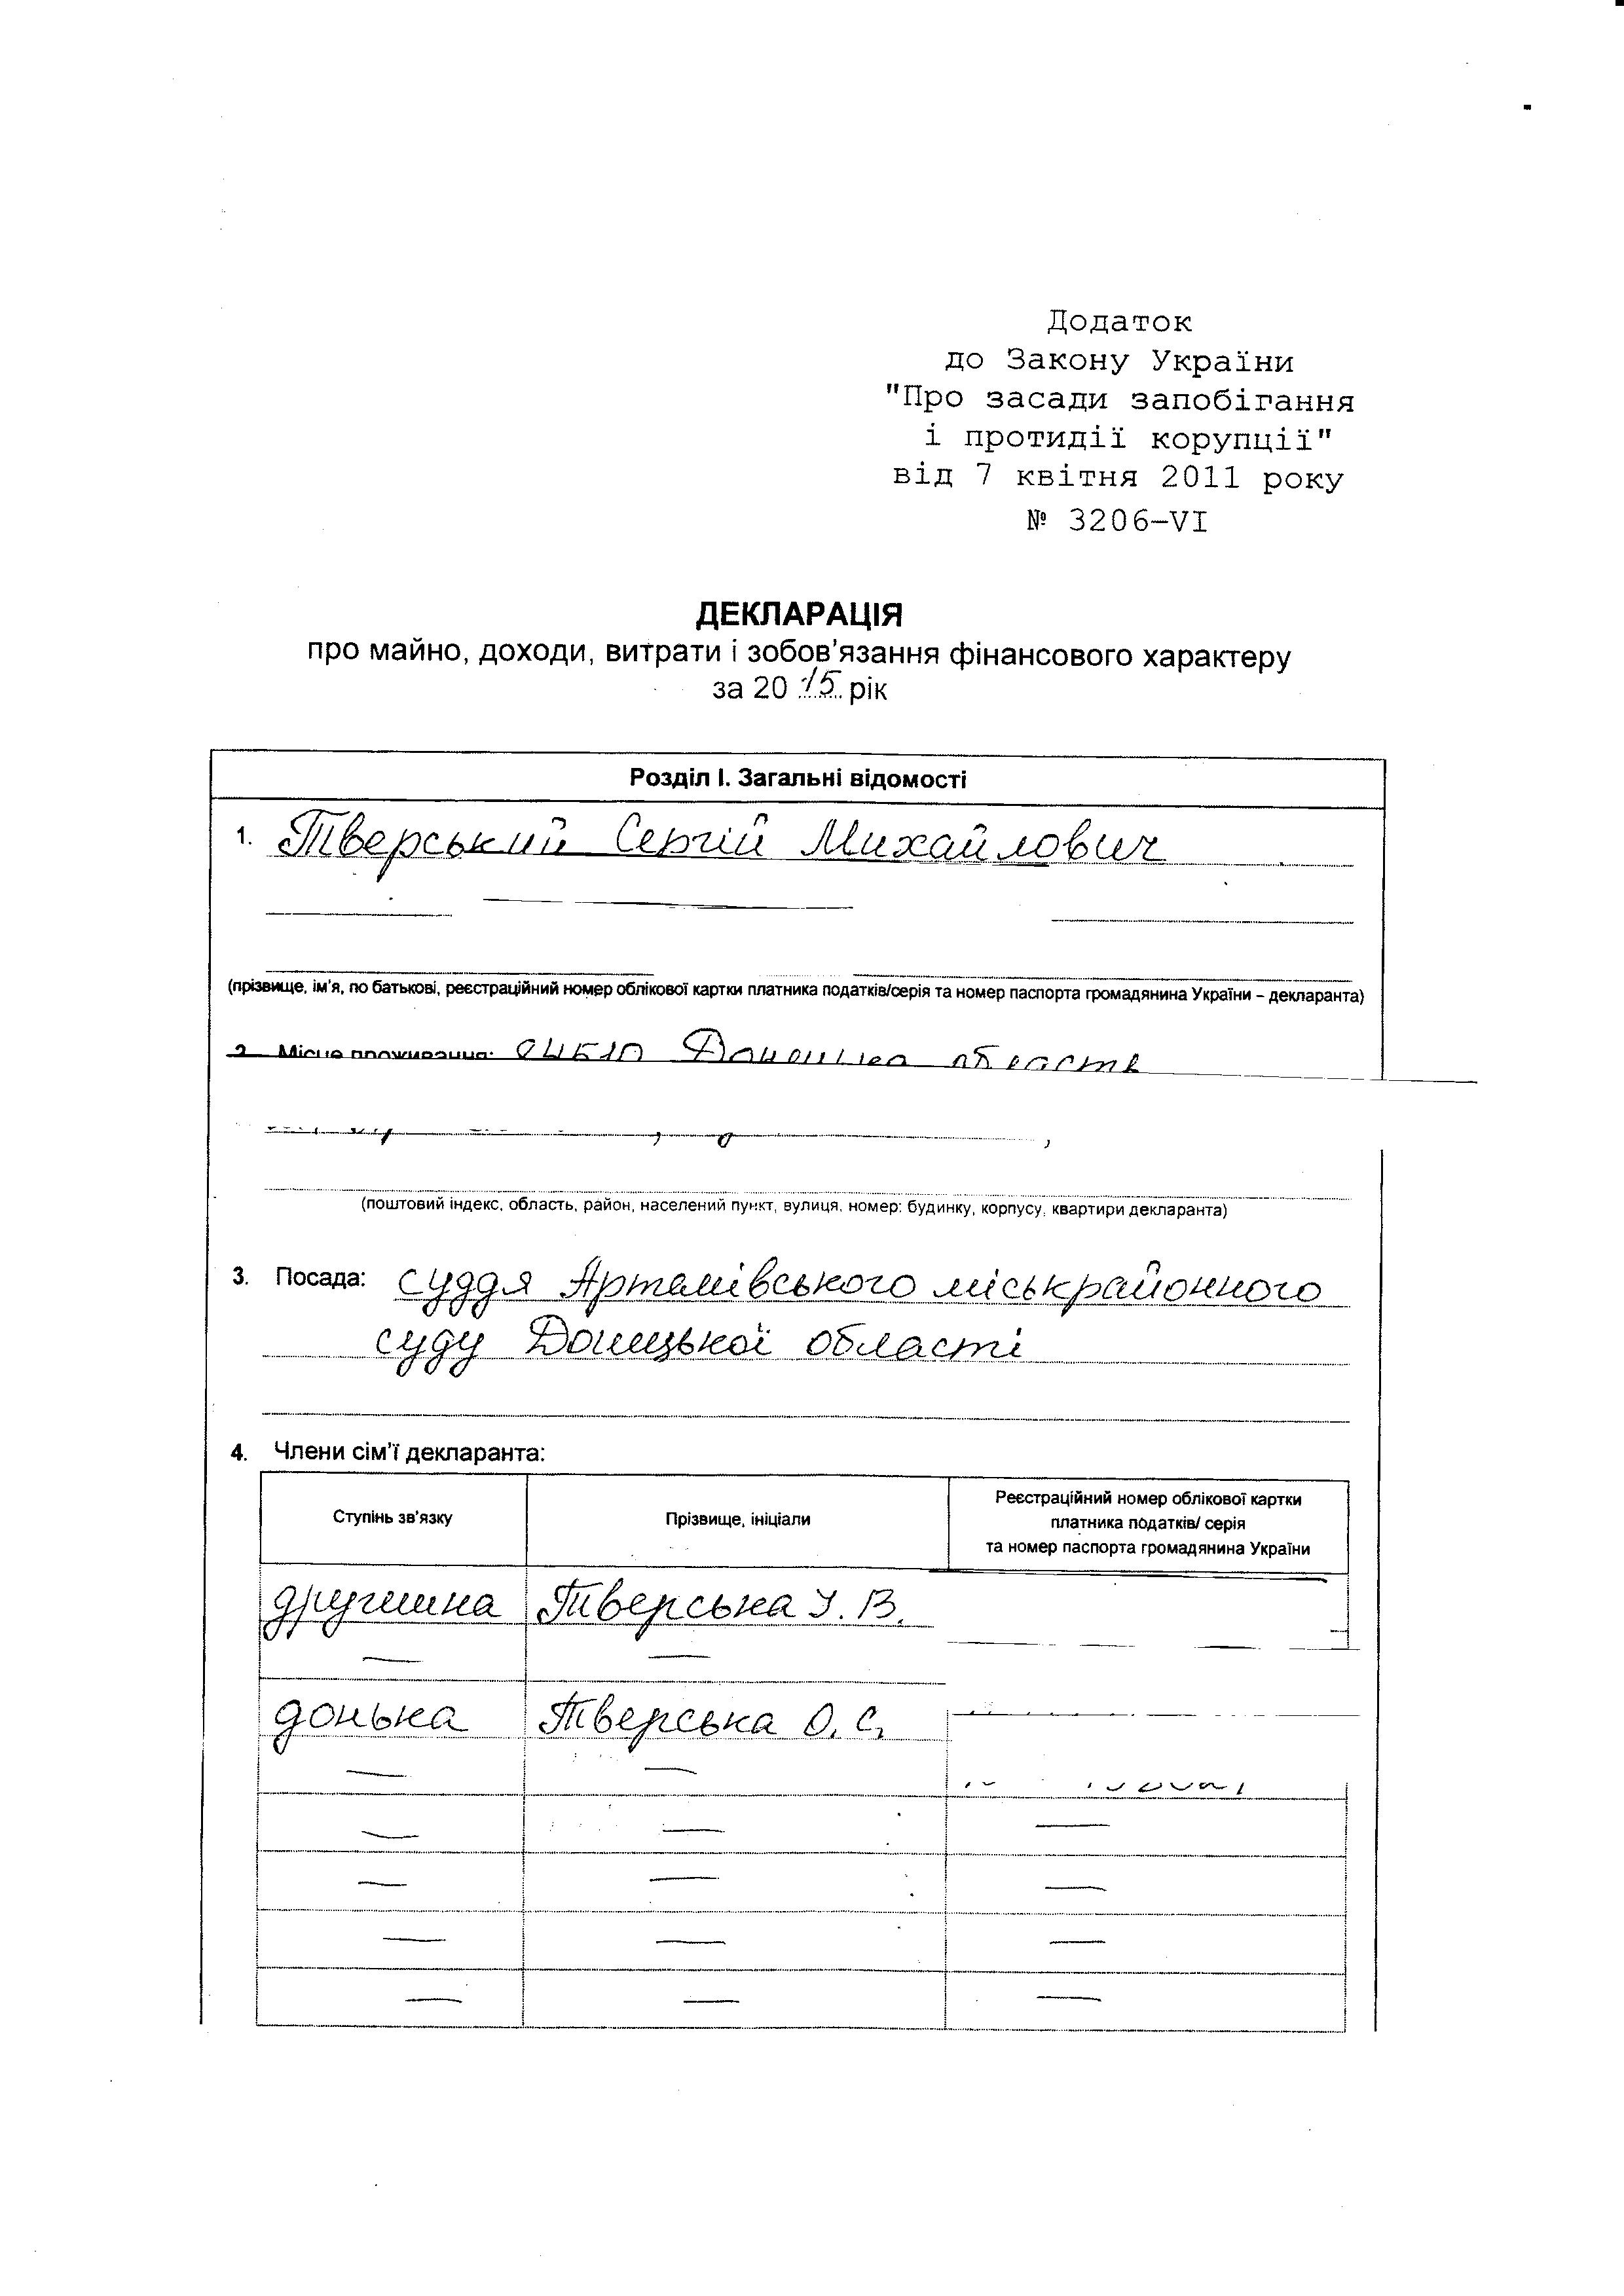 Додаток
до Закону України
"Про засади запобігання
і протидії корупції"
від 7 квітня 2011 року
№ 3206-VI
ДЕКЛАРАЦІЯ
про майно, доходи, витрати і зобов'язання фінансового характеру
за 20 15 рік
Розділ I. Загальні відомості
1. Тверський Сергій Михайлович
(прізвище, ім'я, по батькові, реєстраційний номер облікової картки платника податків/серія та номер паспорта громадянина України – декларанта)
2. Місце проживання: область
(поштовий індекс, область, район, населений пункт, вулиця, номер: будинку, корпусу, квартири декларанта)
3. Посада: суддя Артемівського міськрайонного
суду Донецької області
4. Члени сім'ї декларанта:
Ступінь зв'язку Прізвище, ініціали Реєстраційний номер облікової картки
платника податків/ серія
та номер паспорта громадянина України
дружина Тверська І. В.
— —
донька Тверська О. С.
— —
— — —
— — —
— — —
— — —